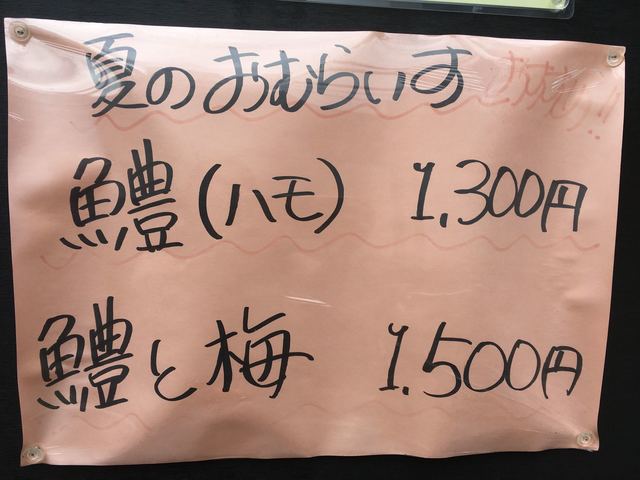 夏のおむらいす おすすめ!!
鱧(ハモ) 1,300円
鱧と梅 1,500円